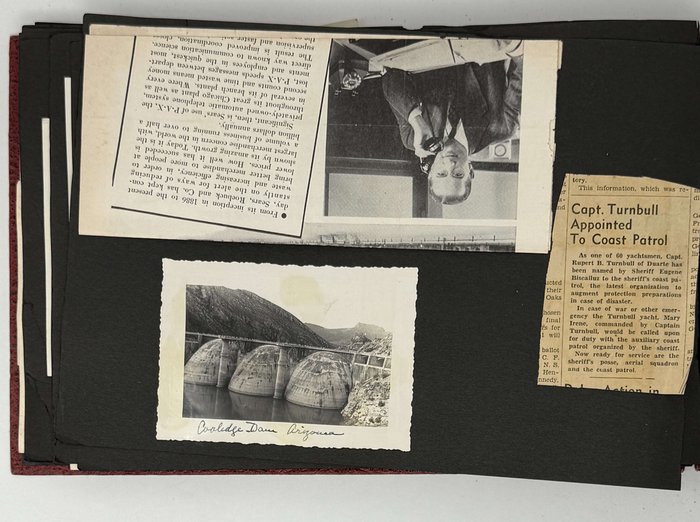 From its inception in 1886 to the present
day, Sears, Roebuck and Co. has kept con-
stantly on the alert for ways of reducing
waste and increasing efficiency, in order to
bring better merchandise to more people at
lower prices. How well it has succeeded is
shown by its amazing growth. Today it is the
largest merchandise concern in the world, with
a volume of business running to over half a
billion dollars annually.
Significant, then, is Sears' use of P-A-X, the
privately-owned automatic telephone system,
throughout its great Chicago plant as well as
in several of its branch plants. Where every
second counts and time wasted means money
lost, P-A-X speeds messages between depart-
ments and employees in the quickest, most
direct way known to communication science.
The result is improved coordination, close
supervision and faster
the
Coolidge Dam Arizona
tory.
This information, which was re-
Capt. Turnbull
Appointed
To Coast Patrol
As one of 60 yachtsmen, Capt.
Rupert B. Turnbull of Duarte has
been named by Sheriff Eugene
Biscailuz to the sheriff's coast pa-
trol, the latest organization to
augment protection preparations
in case of disaster.
In case of war or other emer-
gency the Turnbull yacht, Mary
Irene, commanded by Captain
Turnbull, would be called upon
for duty with the auxiliary coast
patrol organized by the sheriff.
Now ready for service are the
sheriff's posse, aerial squadron
and the coast patrol.
ucted
their
Oaks
hosen
final
fs for
I will
ballot
C. F.
N. S.
Hen-
nedy.
Action in